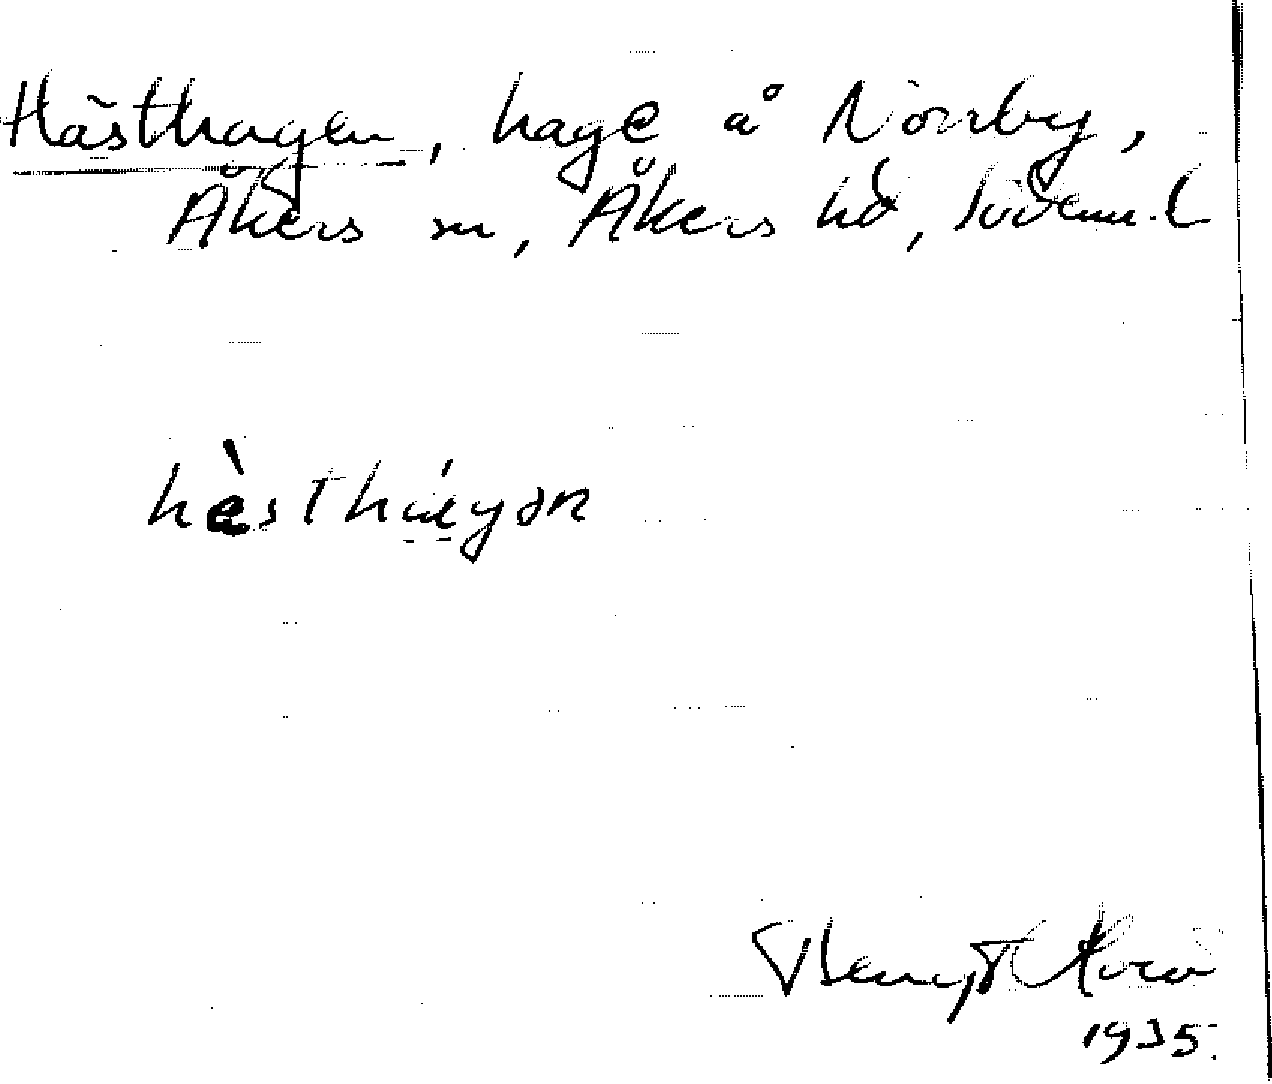 Hästhagen, hage å Norrby,
Åkers sn, Åkers hd, Söderml
hèsthágən
Bengt
1935.